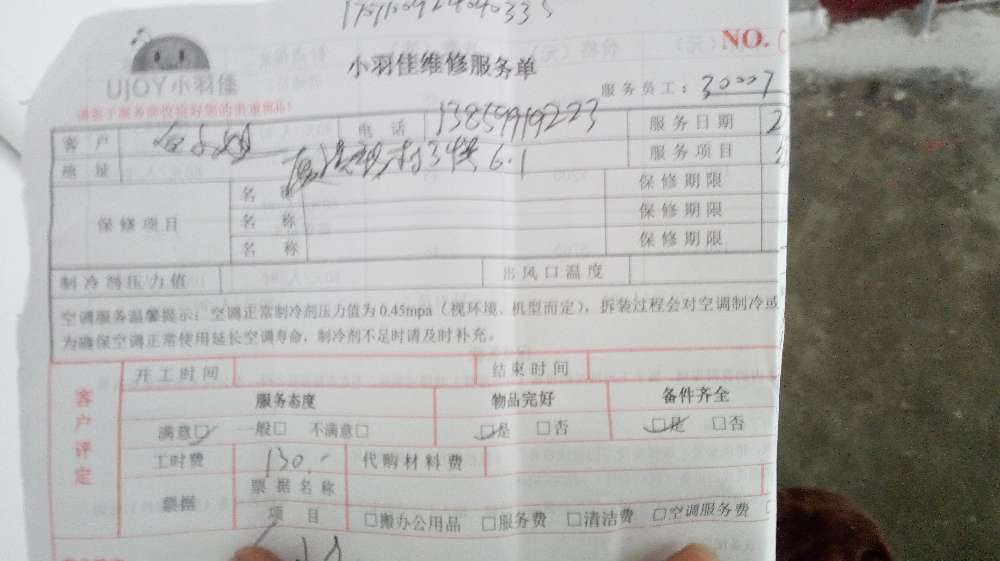 NO.
UJOY小羽佳
小羽佳维修服务单
服务员工：30007
客户 电话 13859919223 服务日期 2
地址 3栋6.1 服务项目
保修项目 名称 保修期限
名称 保修期限
名称 保修期限
制冷剂压力值 出风口温度
空调服务温馨提示：空调正常制冷剂压力值为0.45mpa（视环境、机型而定），拆装过程会对空调制冷或
为确保空调正常使用延长空调寿命，制冷剂不足时请及时补充。
客户评定
开工时间 结束时间
服务态度 物品完好 备件齐全
满意□ 一般□ 不满意□ □是 □否 □是 □否
工时费 130.- 代购材料费
票据 票据名称
项目 □搬办公用品 □服务费 □清洁费 □空调服务费